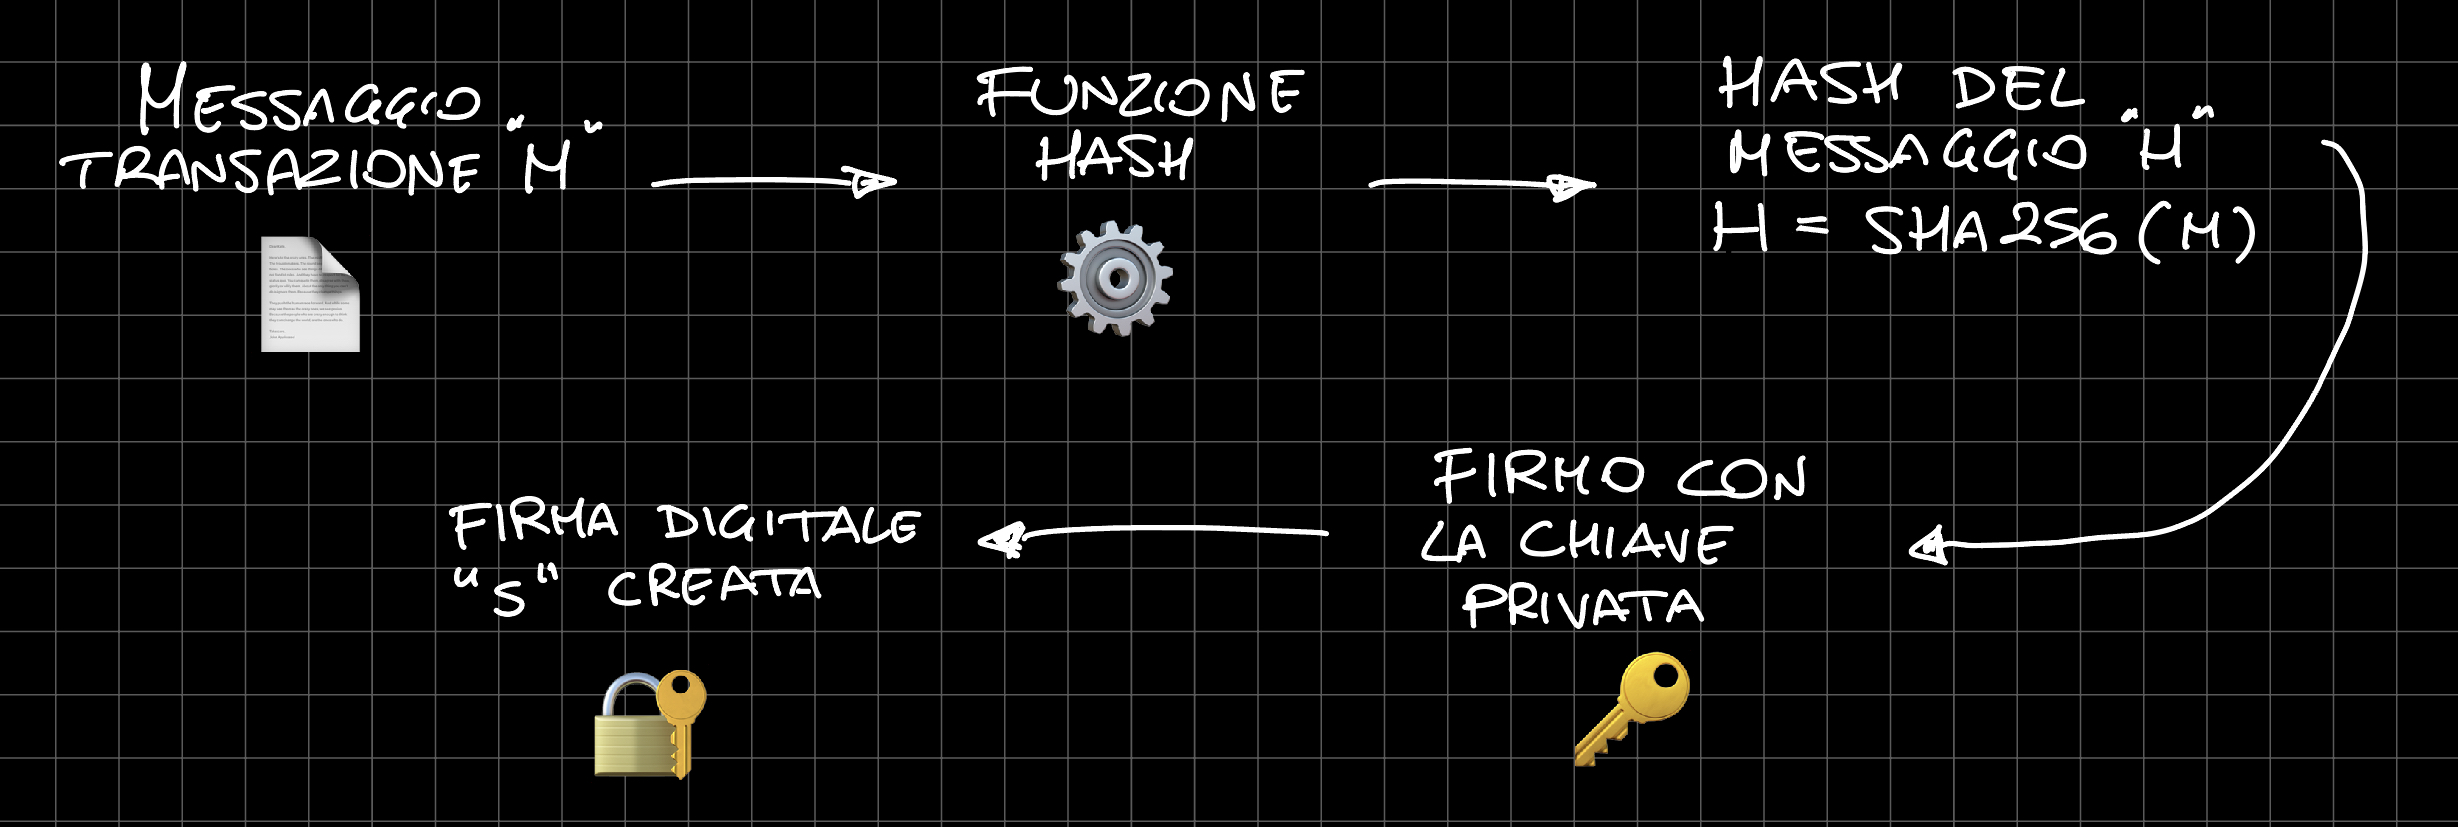 MESSAGGIO
TRANSAZIONE "M"
FUNZIONE
HASH
HASH DEL
MESSAGGIO "H"
H = SHA256 (M)
FIRMO CON
LA CHIAVE
PRIVATA
FIRMA DIGITALE
"S" CREATA